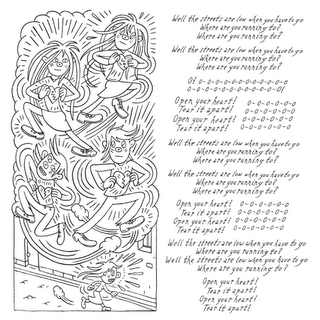 Well the streets are low when you have to go
Where are you running to?
Where are you running to?
Well the streets are low when you have to go
Where are you running to?
Where are you running to?
O! o-o-o-o-o-o-o-o-o-o
o-o-o-o-o-o-o-o-o-o-O!
Open your heart! o-o-o-o-o-o
Tear it apart! o-o-o-o-o-o
Open your heart! o-o-o-o-o-o
Tear it apart! o-o-o-o-o-o
Well the streets are low when you have to go
Where are you running to?
Where are you running to?
Well the streets are low when you have to go
Where are you running to?
Where are you running to?
Open your heart! o-o-o-o-o-o
Tear it apart! o-o-o-o-o-o
Open your heart! o-o-o-o-o-o
Tear it apart! o-o-o-o-o-o
Well the streets are low when you have to go
Where are you running to?
Well the streets are low when you have to go
Where are you running to?
Open your heart!
Tear it apart!
Open your heart!
Tear it apart!